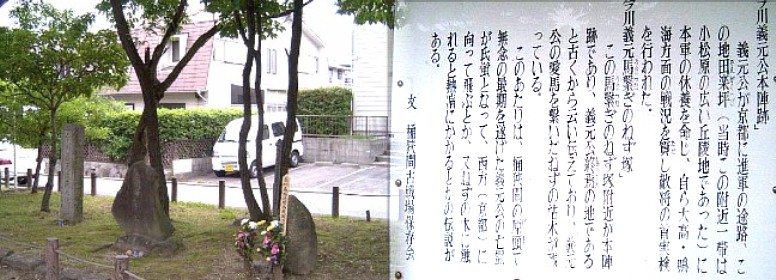 今川義元公本陣跡」
義元公が京都に進軍の途路、こ
の地田楽坪(当時この附近一帯は
小松原の広い丘陵地であった)に
本軍の休養を命じ、自ら大高・鳴
海方面の戦況を賢し敵将の首実検
を行われた。
今川義元馬繋ぎのねず塚
この馬繋ぎのねず塚附近が本陣
跡であり、義元公 の地である
と古くから云い伝えており、 て
公の愛馬を繋いだねずの 木が
っている。
このあたりは、桶狭間の
無念の最期を遂げた義元公の亡霊
が氏蛍となって、西方(京都)に
向って飛ぶとか、又ねずの木に触
れると熱病にかかるとかの伝説が
ある。
文 桶狭間古戦場保存会